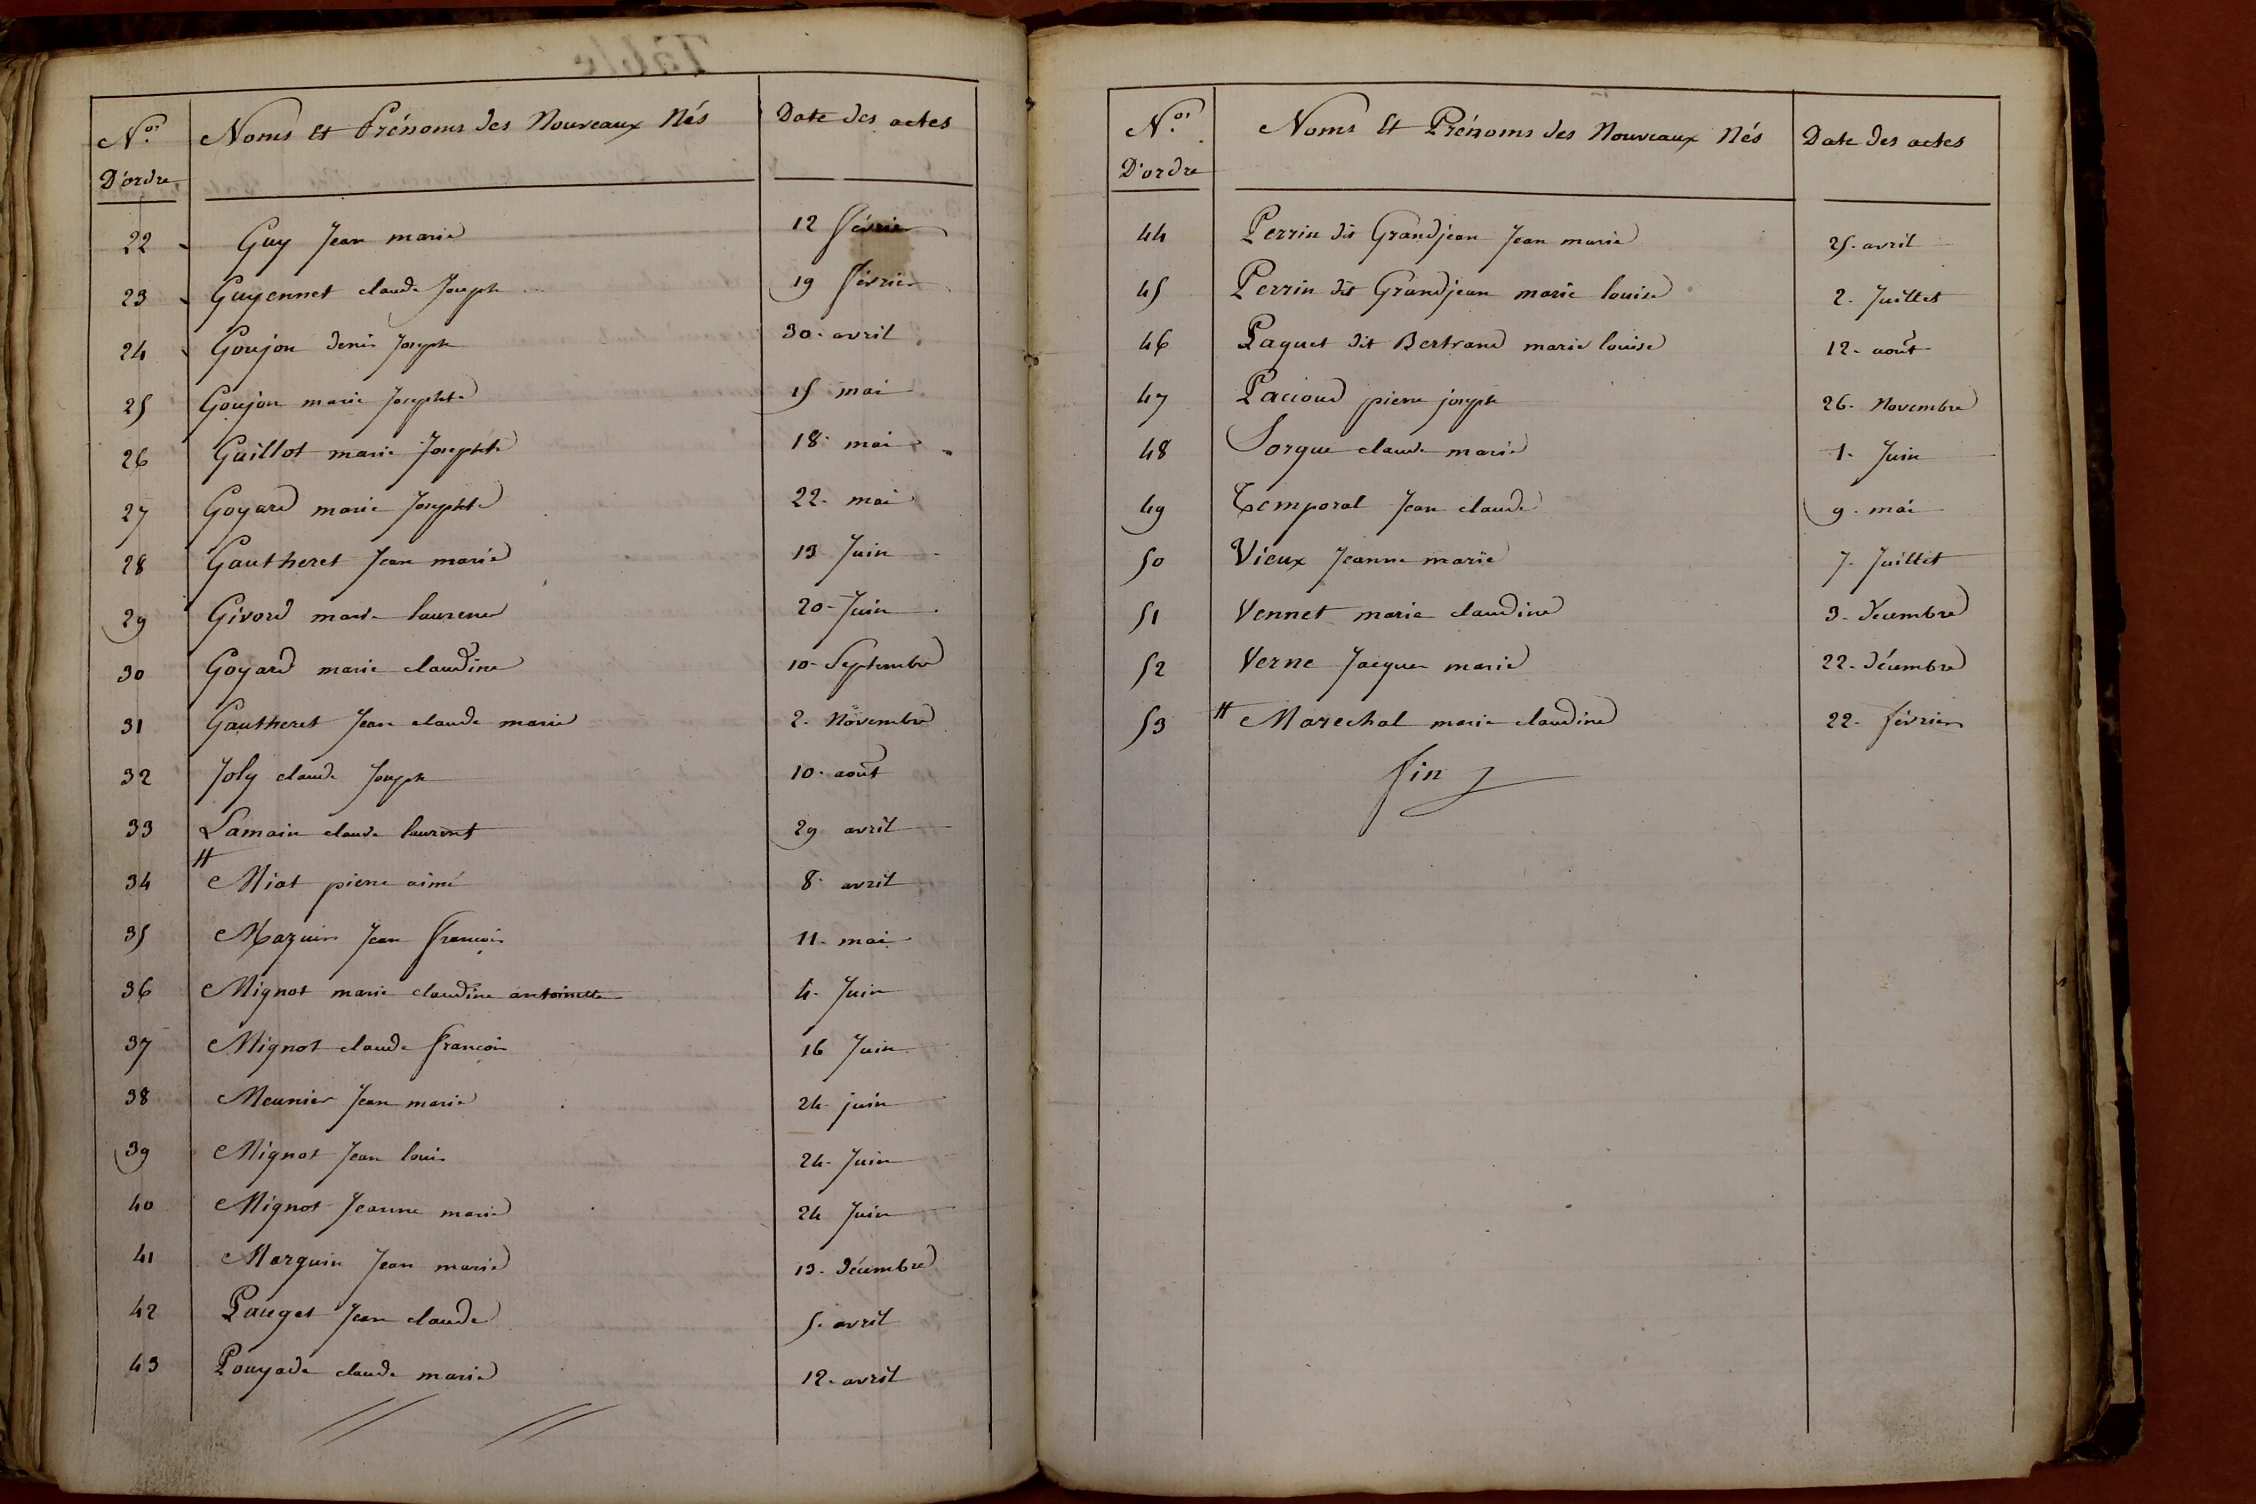 N.os Noms Et Prénoms des Nouveaux Nés Date des actes
D'ordre
22 Guy Jean marie 12 février
23 Guyennet claude Joseph 19 février
24 Goujon denis Joseph 30. avril
25 Goujon marie Josephte 15 mai
26 Guillot marie Josephte 18. mai
27 Goyard marie Josephte 22. mai
28 Gautheret Jean marie 13 Juin
29 Givord marie laurence 20. Juin
30 Goyard marie claudine 10. Septembre
31 Gautheret Jean claude marie 2. Novembre
32 Joly claude Joseph 10. août
33 Lamain claude laurent 29 avril
34 Miat pierre aimé 8. avril
35 Mazuir Jean françois 11. mai
36 Mignot marie claudine antoinette 4. Juin
37 Mignot claude françois 16 Juin
38 Meunier Jean marie 24. juin
39 Mignot Jean louis 24. Juin
40 Mignot Jeanne marie 24 Juin
41 Marguin Jean marie 13. décembre
42 Pauget Jean claude 5. avril
43 Pouyade claude marie 12. avril
N.os Noms Et Prénoms des Nouveaux Nés Date des actes
D'ordre
44 Perrin dit Grandjean Jean marie 25. avril
45 Perrin dit Grandjean marie louise 2. Juillet
46 Paquet dit Bertrand marie louise 12. août
47 Pacioud pierre joseph 26. Novembre
48 Sorgue claude marie 1. Juin
49 Temporal Jean claude 9. mai
50 Vieux Jeanne marie 7. Juillet
51 Vennet marie claudine 3. décembre
52 Verne Jacques marie 22. décembre
53 Marechal marie claudine 22. février
fin